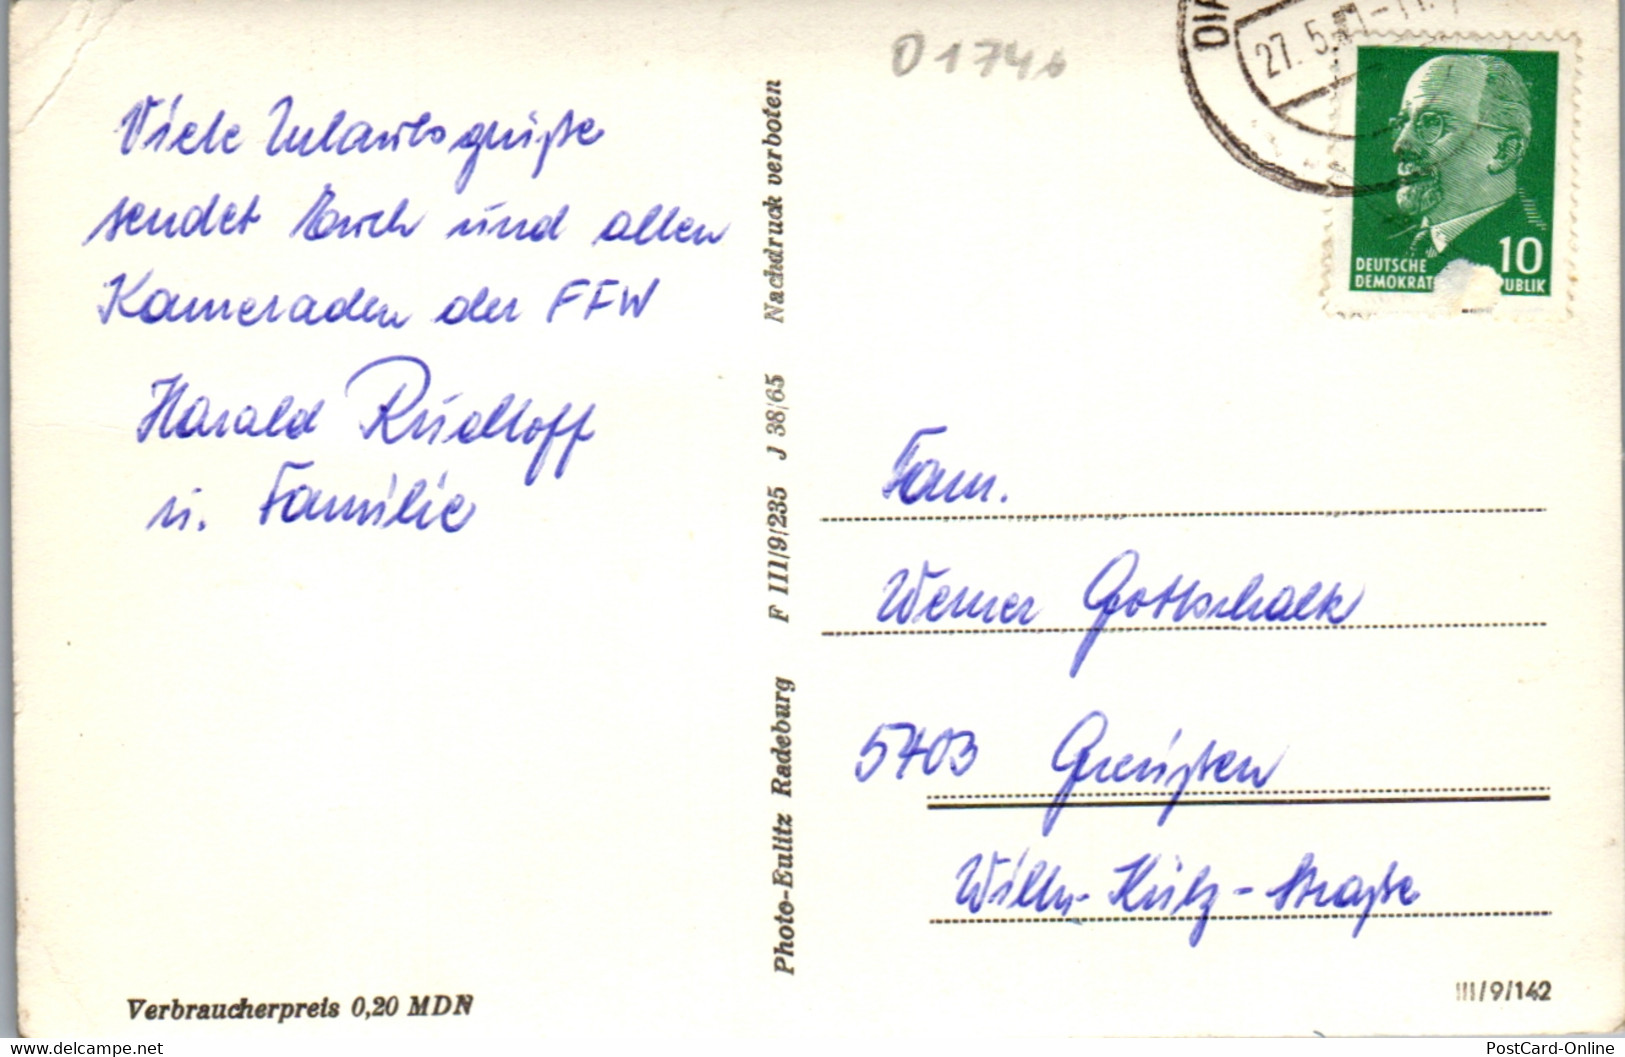 Viele Urlaubsgrüße
sendet Euch und allen
Kameraden der FFW
Harald Rudloff
u. Familie
Verbraucherpreis 0,20 MDN
Photo-Eulitz Radeburg F III/9/235 J 38/65 Nachdruck verboten
O 1746
27. 5.
10
DEUTSCHE
DEMOKRAT UBLIK
Fam.
Werner Gottschalk
5403 Greußen
Wilh.-Külz-Straße
III/9/142
PostCard-Online